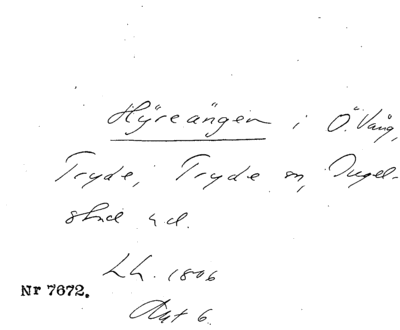 Hÿreängen i Ö. Vång,
Tryde, Tryde sn, Ingel-
stad hd.
Lh. 1806
Akt 6.
Nr 7672.